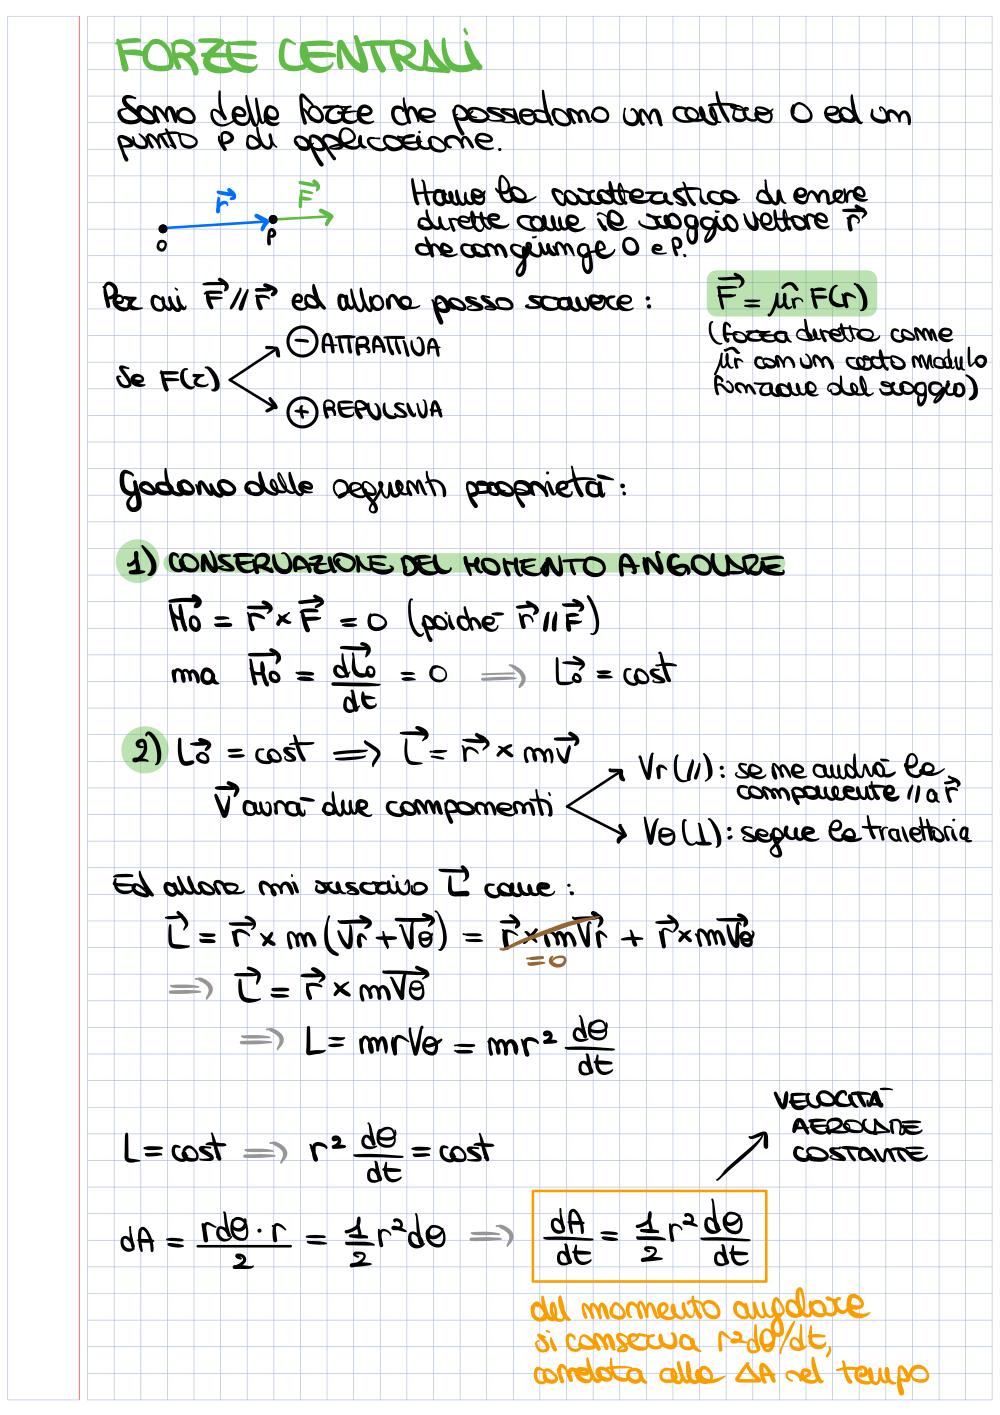 FORZE CENTRALI
Sono delle forze che possiedono un centro O ed un
punto P di applicazione.
r⃗ F⃗
O P
Hanno la caratteristica di essere
dirette come il raggio vettore r⃗
che congiunge O e P.
Per cui F⃗ // r⃗ ed allora posso scrivere :
F⃗ = μ̂r F(r)
(forza diretta come
μ̂r con un certo modulo
funzione del raggio)
⊖ ATTRATTIVA
Se F(r)
⊕ REPULSIVA
Godono delle seguenti proprietà :
1) CONSERVAZIONE DEL MOMENTO ANGOLARE
M⃗o = r⃗ × F⃗ = 0 (poichè r⃗ // F⃗)
ma M⃗o = dL⃗o/dt = 0 ⇒ L⃗o = cost
2) L⃗o = cost ⇒ L⃗ = r⃗ × mv⃗
V⃗ avrà due componenti
Vr (//) : se ne andrà la
componente // a r⃗
Vθ (⊥) : segue la traiettoria
Ed allora mi riscrivo L⃗ come :
L⃗ = r⃗ × m (V⃗r + V⃗θ) = r⃗ × mV⃗r + r⃗ × mV⃗θ
=0
⇒ L⃗ = r⃗ × mV⃗θ
⇒ L = mrVθ = mr² dθ/dt
VELOCITÀ
AEROLARE
COSTANTE
L = cost ⇒ r² dθ/dt = cost
dA = rdθ · r/2 = 1/2 r² dθ ⇒ dA/dt = 1/2 r² dθ/dt
del momento angolare
si conserva r²dθ/dt,
correlata alla ΔA nel tempo